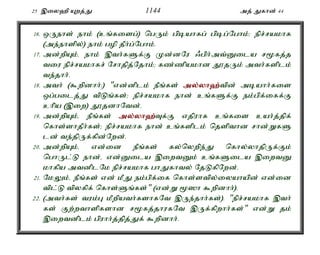 25 இலைஹி யுறத்து 1144 அத் துகான் 44
16. ஒருநாள் நாம் (உங்களைப்) பெரும் பிடியாகப் பிடிப்போம்; நிச்சயமாக
(அந்நாளில்) நாம் பழி தீர்ப்போம்.
17. அன்றியும், நாம் இவர்களுக்கு முன்னரே ஃபிர்அவ்னுடைய சமூகத்த
வரை நிச்சயமாகச் சோதித்தோம்; கண்ணியமான தூதரும் அவர்களிடம்
வந்தார்.
18. அவர் (கூறினார்:) "என்னிடம் நீங்கள் அல்லாஹ்வின் அடியார்களை
ஒப்படைத்து விடுங்கள்; நிச்சயமாக நான் உங்களுக்கு நம்பிக்கைக்கு
உரிய (இறை) தூதனாவேன்.
19. அன்றியும், நீங்கள் அல்லாஹ்வுக்கு எதிராக உங்களை உயர்த்திக்
கொள்ளாதீர்கள்; நிச்சயமாக நான் உங்களிடம் தெளிவான சான்றுகளு
டன் வந்திருக்கின்றேன்.
20. அன்றியும், என்னை நீங்கள் கல்லெறிந்து கொல்லாதிருக்கும்
பொருட்டு நான், என்னுடைய இறைவனும் உங்களுடைய இறைவனு
மாகிய அவனிடமே நிச்சயமாக பாதுகாவல் தேடுகிறேன்.
21. மேலும், நீங்கள் என் மீது நம்பிக்கை கொள்ளவில்லையாயின் என்னை
விட்டு விலகிக் கொள்ளுங்கள்" (என்று மூஸா கூறினார்).
22. (அவர்கள் வரம்பு மீறியவர்களாகவே இருந்தார்கள்). "நிச்சயமாக இவர்
கள் குற்றவாளிகளான சமூகத்தாராகவே இருக்கிறார்கள்" என்று தம்
இறைவனிடம் பிரார்த்தித்துக் கூறினார்.